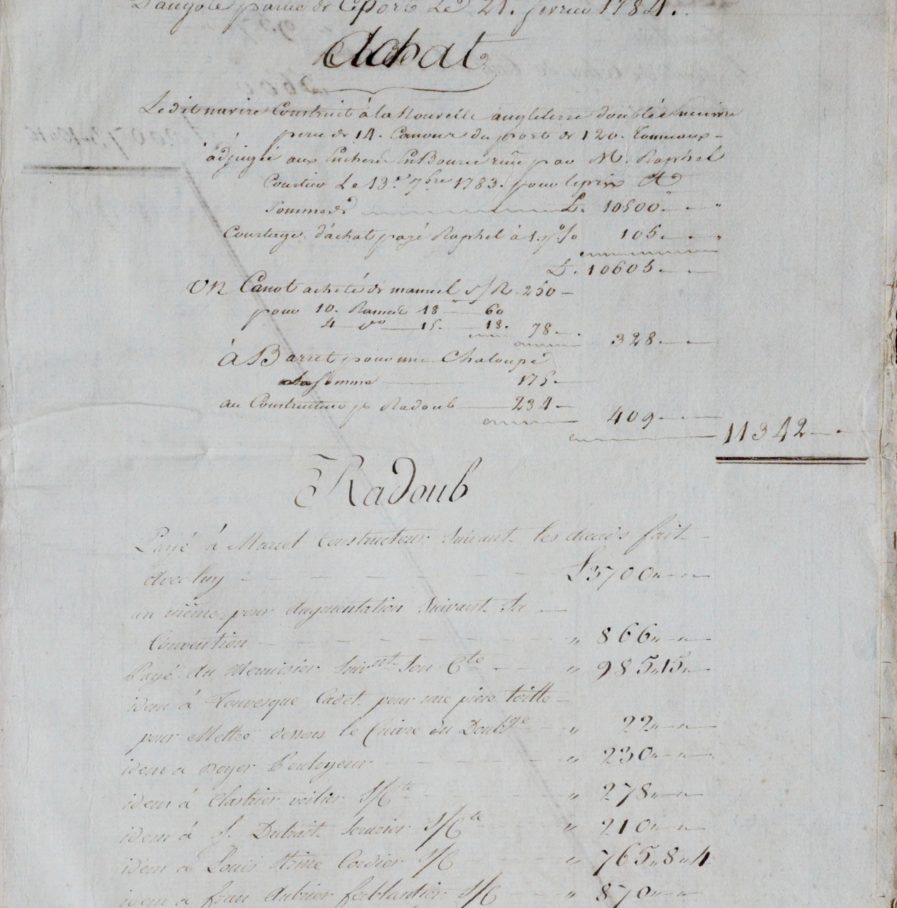 parti de ce Port Le 21. fevrier 1784.
Achat
Ledit navire Construit à la Nouvelle angleterre doublé en cuivre
percé de 14. Canons du port de 120. Tonneaux
adjugé aux Encheres En Bourse par M. Raphel
Courtier Le 13. 7bre 1783. pour le prix &
Somme de L. 10500
Courtage d'achat payé Raphel à 1 p% 105
L. 10605
un Canot acheté de manuel s/R. 250
pour 10. Rames 18 60
4 do 15. 18. 78 328
à Barret pour une Chaloupe
la somme 175
au Constructeur p. Radoub 234 409
11342
Radoub
Payé à Marcel Constructeur Suivant les fait
avec luy £3700
au même pour augmentation Suivant
Convention " 866
Payé au Menuisier Suivt Son Cte " 985 15
idem à Cadet pour une piece toille
pour Mettre dessous le Cuivre du Doublge " 22
idem a Poulayeur " 230
idem à voilier S/Cte " 278
idem à S/Cte " 210
idem à Louis Cordier S/C " 765 " 8 " 4
idem à Jean ferblantier S/C " 870